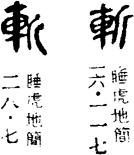 斬
睡虎地簡
一六·一一七
斬
睡虎地簡
二八·七